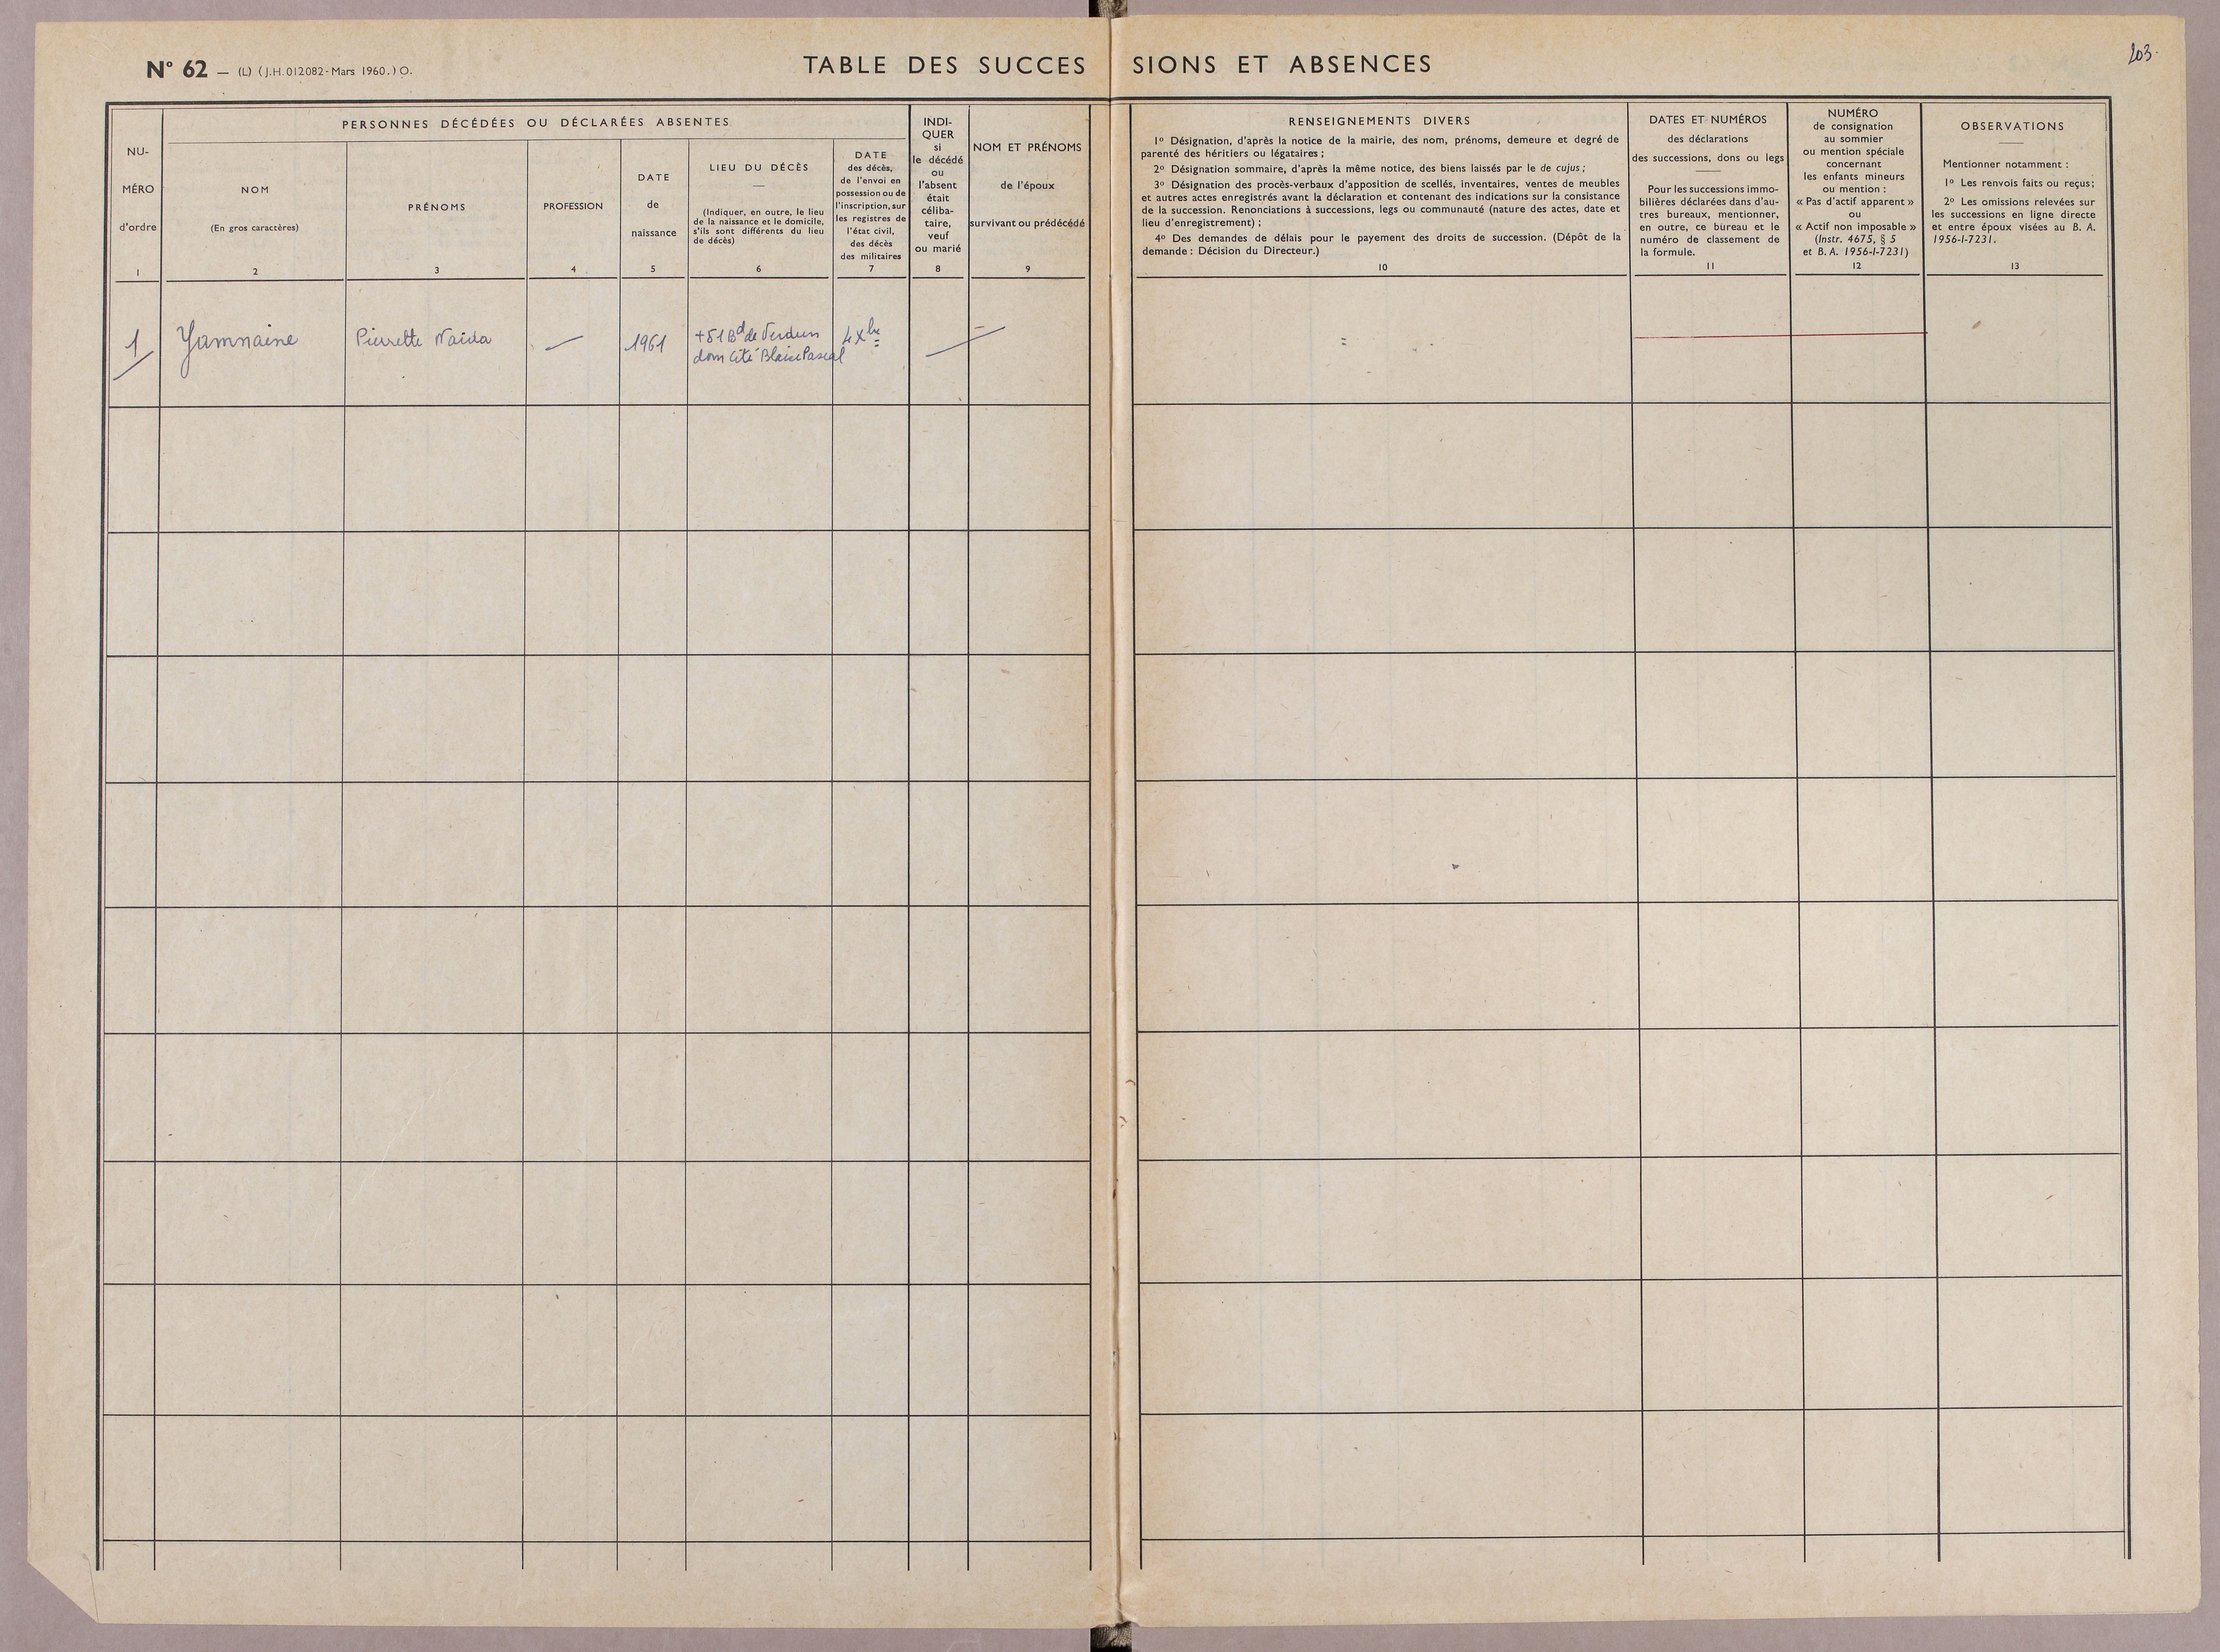 N° 62 — (L) (J.H. 012082 - Mars 1960.) O.
TABLE DES SUCCESSIONS ET ABSENCES
203.
NU-
MÉRO
d'ordre
1
PERSONNES DÉCÉDÉES OU DÉCLARÉES ABSENTES
NOM
(En gros caractères)
2
PRÉNOMS
3
PROFESSION
4
DATE
de
naissance
5
LIEU DU DÉCÈS
(Indiquer, en outre, le lieu
de la naissance et le domicile,
s'ils sont différents du lieu
de décès)
6
DATE
des décès,
de l'envoi en
possession ou de
l'inscription, sur
les registres de
l'état civil,
des décès
des militaires
7
INDI-
QUER
si
le décédé
ou
l'absent
était
céliba-
taire,
veuf
ou marié
8
NOM ET PRÉNOMS
de l'époux
survivant ou prédécédé
9
RENSEIGNEMENTS DIVERS
1° Désignation, d'après la notice de la mairie, des nom, prénoms, demeure et degré de
parenté des héritiers ou légataires ;
2° Désignation sommaire, d'après la même notice, des biens laissés par le de cujus ;
3° Désignation des procès-verbaux d'apposition de scellés, inventaires, ventes de meubles
et autres actes enregistrés avant la déclaration et contenant des indications sur la consistance
de la succession. Renonciations à successions, legs ou communauté (nature des actes, date et
lieu d'enregistrement) ;
4° Des demandes de délais pour le payement des droits de succession. (Dépôt de la
demande : Décision du Directeur.)
10
DATES ET NUMÉROS
des déclarations
des successions, dons ou legs
Pour les successions immo-
bilières déclarées dans d'au-
tres bureaux, mentionner,
en outre, ce bureau et le
numéro de classement de
la formule.
11
NUMÉRO
de consignation
au sommier
ou mention spéciale
concernant
les enfants mineurs
ou mention :
« Pas d'actif apparent »
ou
« Actif non imposable »
(Instr. 4675, § 5
et B. A. 1956-I-7231)
12
OBSERVATIONS
Mentionner notamment :
1° Les renvois faits ou reçus ;
2° Les omissions relevées sur
les successions en ligne directe
et entre époux visées au B. A.
1956-I-7231.
13
1
Yamnaine
Pierrette Naïda
—
1961
+ 51 Bd de Verdun
dom Cité Blaise Pascal
4 Xbre
—